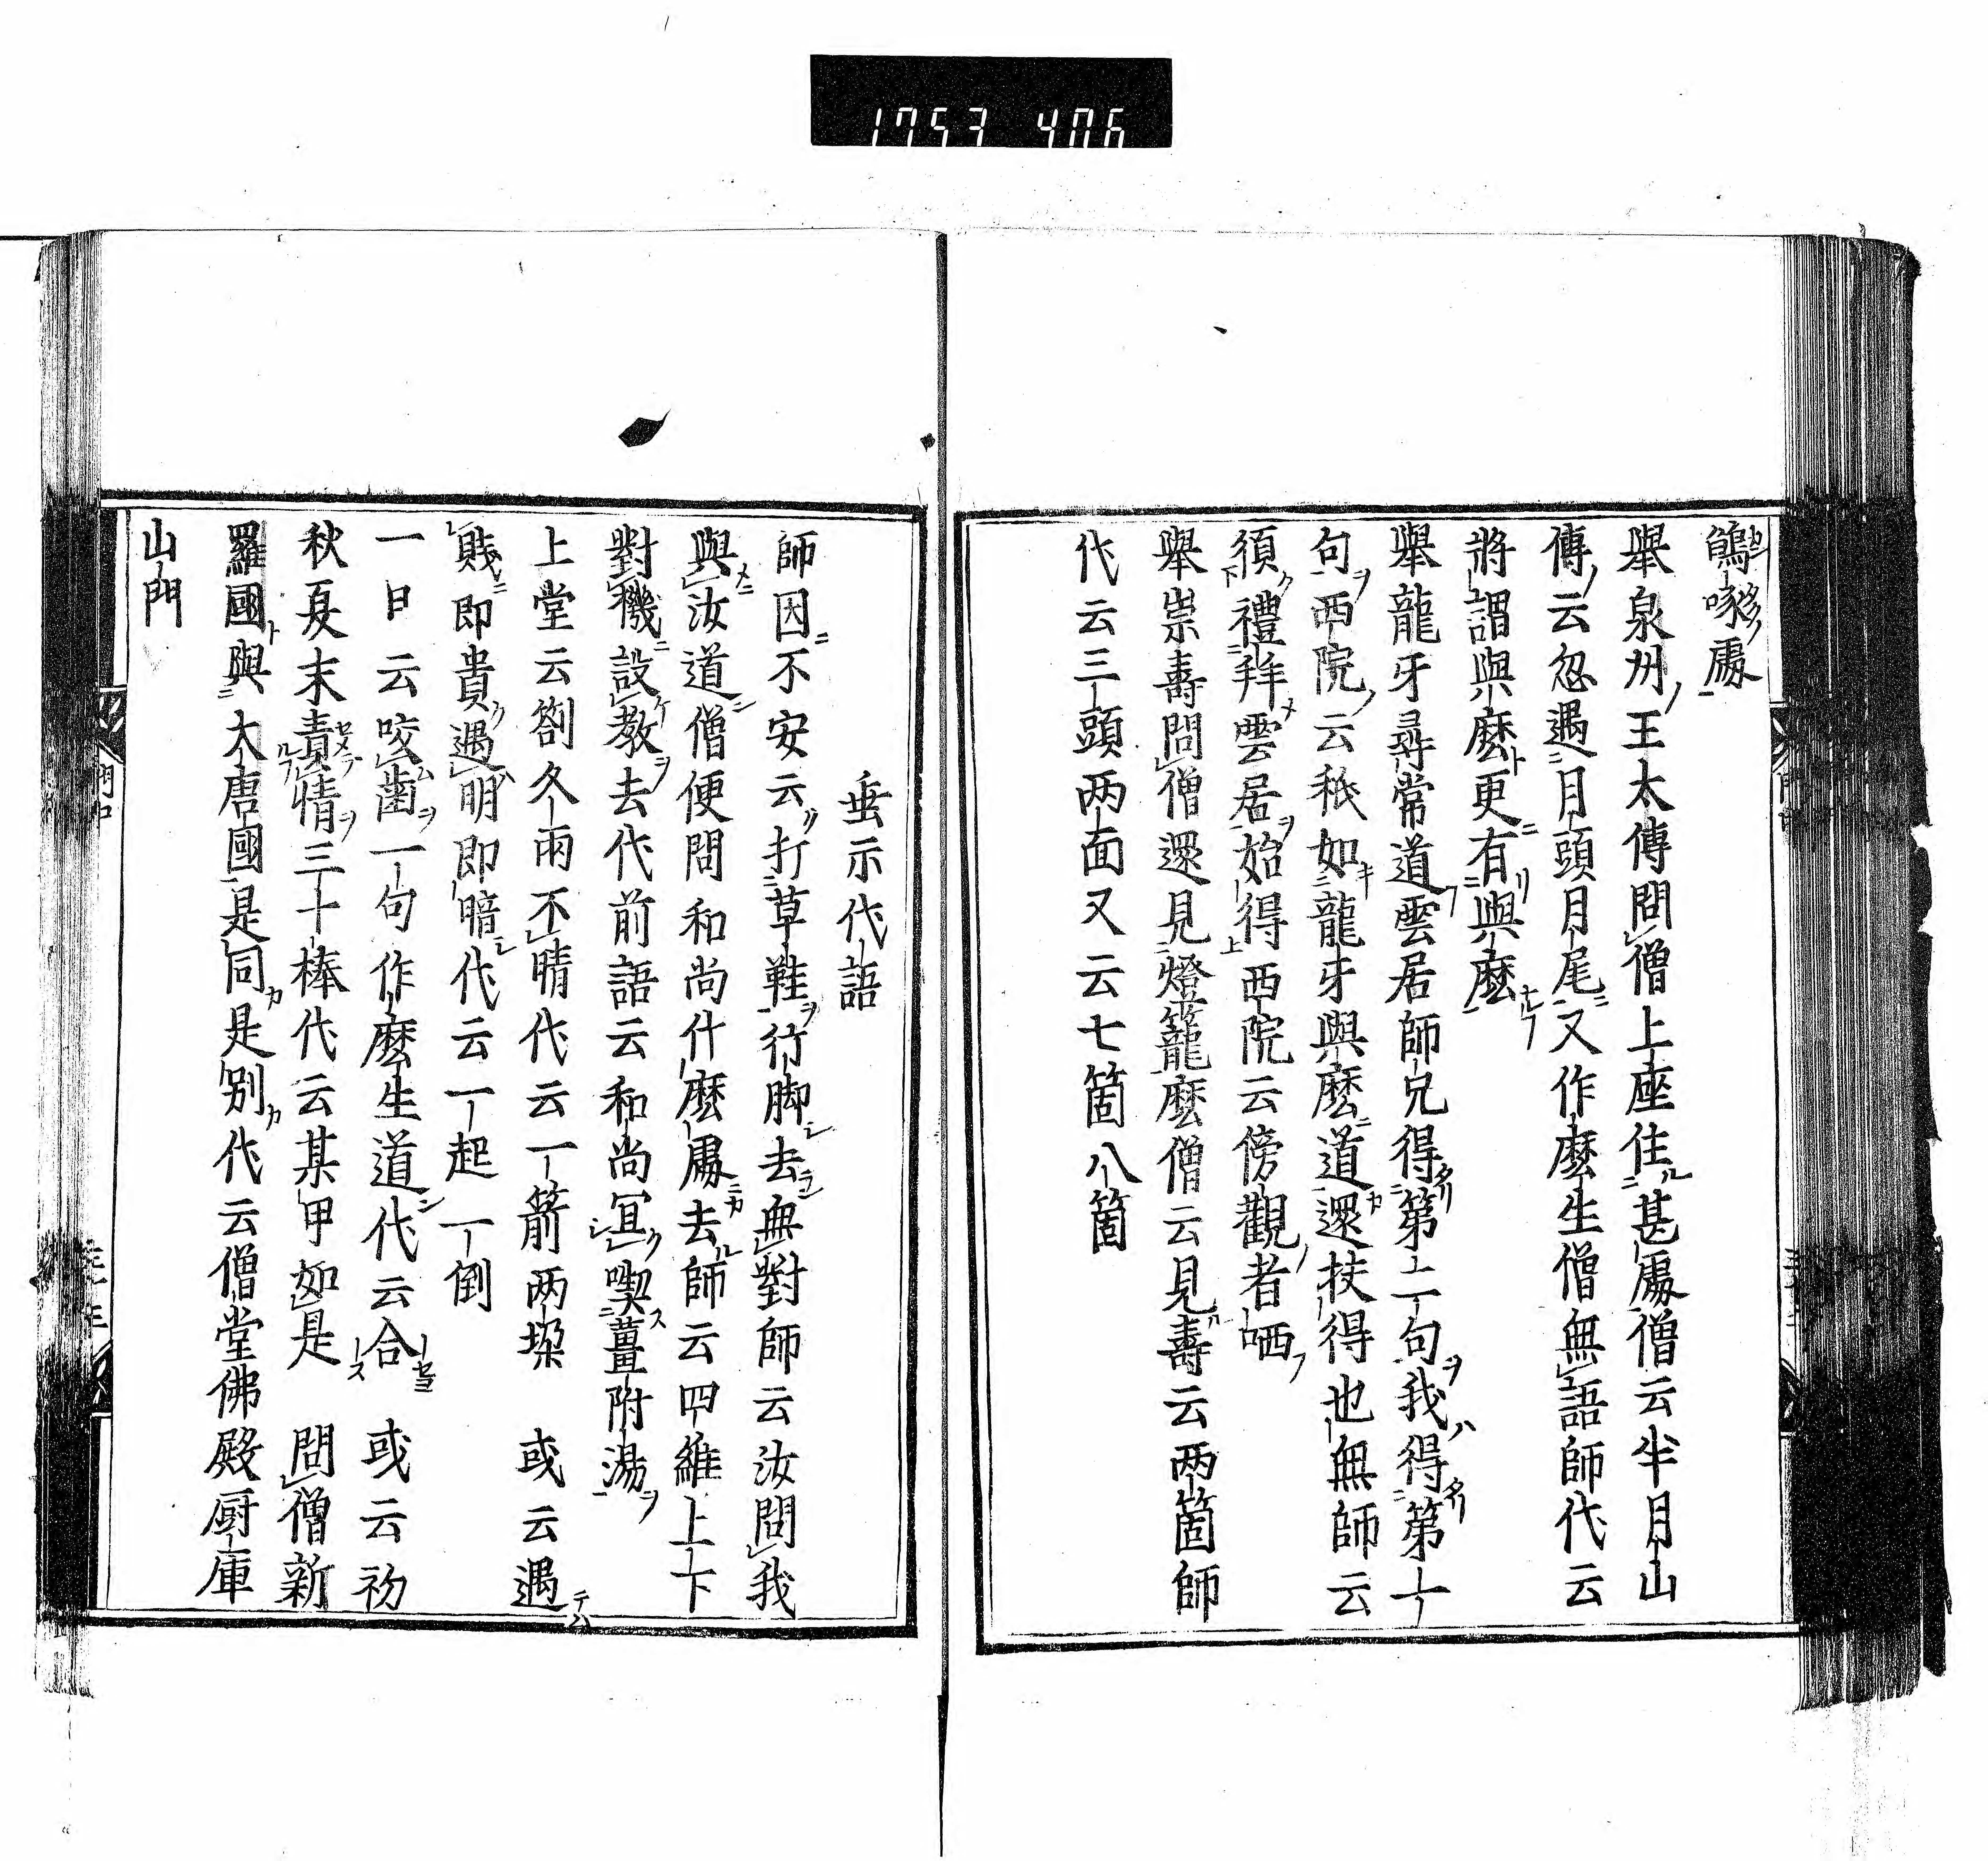 1753 406
鴆啄處
舉泉州王太傳問僧上座住甚處僧云半月山
傳云忽遇月頭月尾又作麼生僧無語師代云
將謂與麼更有與麼
舉龍牙尋常道雲居師兄得第二句我得第一
句西院云秖如龍牙與麼道還扶得也無師云
須禮拜雲居始得西院云傍觀者哂
舉崇壽問僧還見燈籠麼僧云見壽云兩箇師
代云三頭兩面又云七箇八箇
垂示代語
師因不安云打草鞋行脚去無對師云汝問我
與汝道僧便問和尚什麼處去師云四維上下
對機設教去代前語云和尚宜喫薑附湯
上堂云劄久雨不晴代云一箭兩垜　或云遇
賎即貴遇明即暗代云一起一倒
一日云咬齒一句作麼生道代云合　或云初
秋夏末責情三十棒代云某甲如是　問僧新
羅國與大唐國是同是別代云僧堂佛殿厨庫
山門